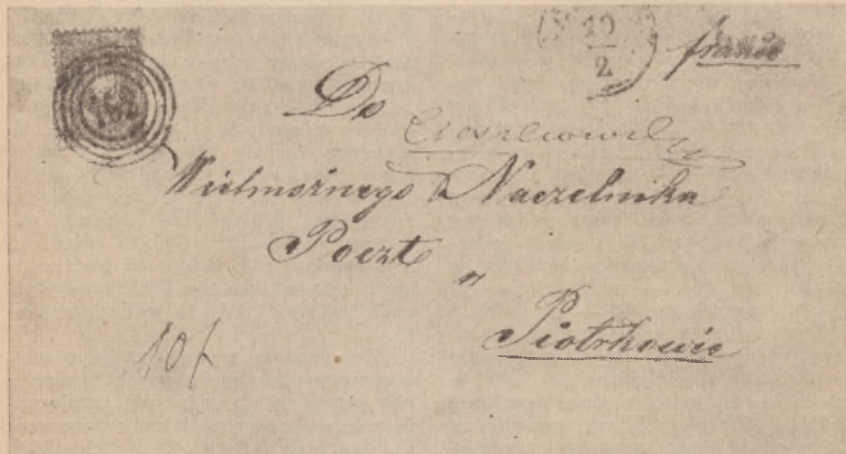 10
2
franco
Do
Wielmożnego Naczelnika
Poczt
w
Piotrkowie
10 f